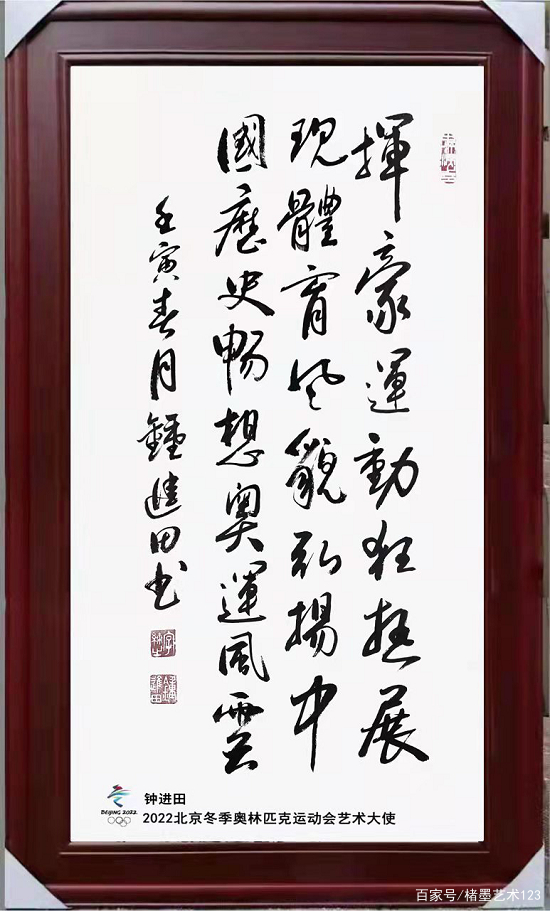 揮豪運動狂热展
現體育风貌弘揚中
國歷史暢想奧運風雲
壬寅春月鍾進田书
BEIJING 2022
钟进田
2022北京冬季奥林匹克运动会艺术大使
百家号/楮墨艺术123